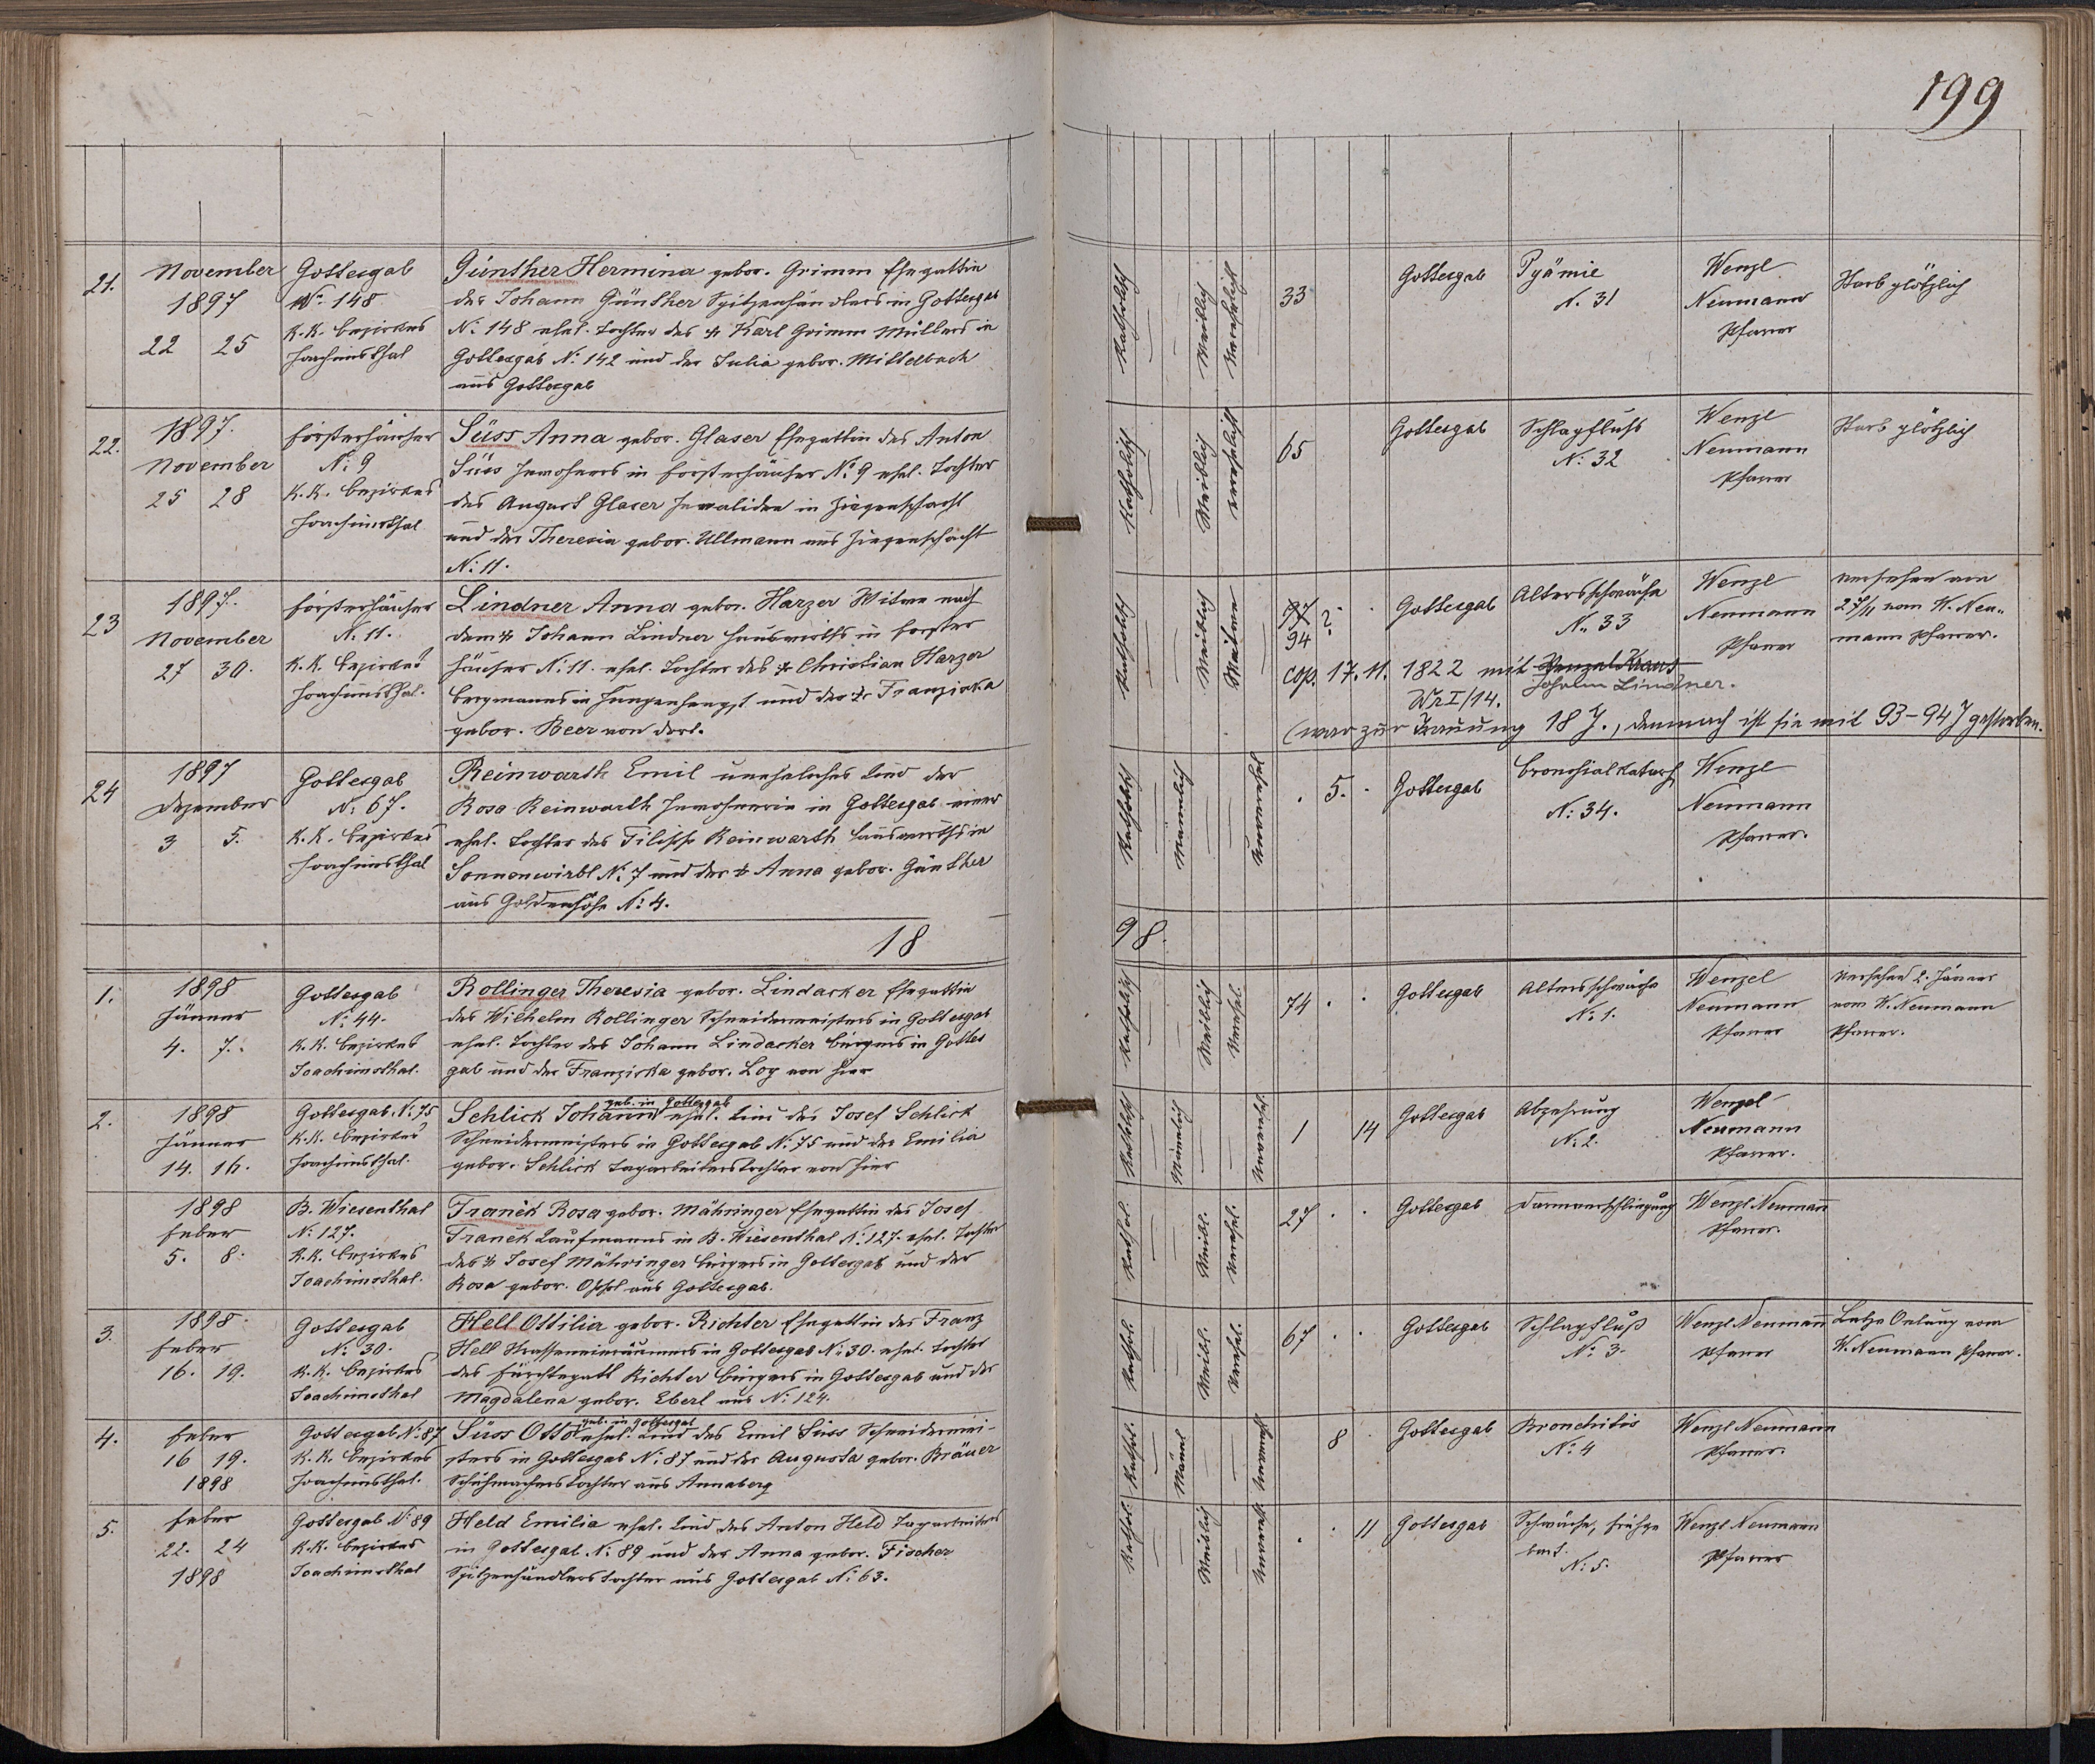 199
21.
November
1897
22 25
Gottesgab
N: 148
K.K. Bezirkes
Joachimsthal
Günther Hermina gebor. Grimm Ehegattin
des Johann Günther Spitzenhändlers in Gottesgab
N: 148 ehel. Tochter des † Karl Grimm Müllers in
Gottesgab N: 142 und der Julia gebor. Mittelbach
aus Gottesgab
Katholisch
Weiblich
Verehelicht
33
Gottesgab
Pyämie
N. 31
Wenzl
Neumann
Pfarrer
Starb plötzlich
22.
1897.
November
25 28
Försterhäuser
N: 9
K.K. Bezirkes
Joachimsthal
Süss Anna gebor. Glaser Ehegattin des Anton
Süss Inwohners in Försterhäuser N: 9 ehel. Tochter
des August Glaser Invaliden in Ziegenschacht
und der Theresia gebor. Ullmann aus Ziegenschacht
N: 11.
Katholisch
Weiblich
verehelicht
65
Gottesgab
Schlagfluß
N: 32
Wenzl
Neumann
Pfarrer
Starb plötzlich
23
1897.
November
27 30.
Försterhäuser
N. 11.
K.K. Bezirkes
Joachimsthal.
Lindner Anna gebor. Harzer Witwe nach
dem † Johann Lindner Hauswirths in Förster
häuser N: 11. ehel. Tochter des † Christian Harzer
Bergmanns in Hengenhengst und der † Franziska
gebor. Beer von dort.
Katholisch
Weiblich
Witwe
94 ?
Gottesgab
Altersschwäche
N. 33
Wenzl
Neumann
Pfarrer
versehen am
27/11 vom W. Neu-
mann Pfarrer.
cop. 17. 11. 1822 mit Wenzel Kraus
Johann Lindner.
Wr I/14.
(war zur Trauung 18 J., demnach ist sie mit 93-94 J gestorben.
24
1897
Dezember
3 5.
Gottesgab
N: 67.
K.K. Bezirkes
Joachimsthal
Reinwarth Emil uneheliches Kind der
Rosa Reinwarth Inwohnerin in Gottesgab einer
ehel. Tochter des Filipp Reinwarth Hauswirths in
Sonnenwirbl N: 7 und der † Anna gebor. Günther
aus Goldenhöhe N: 4.
Katholisch
Männlich
Unverehel
5.
Gottesgab
Bronchialkatarh
N: 34.
Wenzl
Neumann
Pfarrer.
18 98.
1.
1898
Jänner
4. 7.
Gottesgab
N: 44.
K.K. Bezirkes
Joachimsthal.
Rollinger Theresia gebor. Lindacker Ehegattin
des Wilhelm Rollinger Schneidermeisters in Gottesgab
ehel. Tochter des Johann Lindacker Bürgers in Gottes
gab und der Franziska gebor. Loy von hier
Katholisch
Weiblich
Verehel.
74
Gottesgab
Altersschwäche
N: 1.
Wenzel
Neumann
Pfarrer
Versehen 2. Jänner
vom W. Neumann
Pfarrer.
2.
1898
Jänner
14. 16.
Gottesgab. N: 75
K.K. Bezirkes
Joachimsthal.
geb. in Gottesgab
Schlick Johann ehel. Kind des Josef Schlick
Schneidermeisters in Gottesgab N: 75 und der Emilia
gebor. Schlick Tagarbeiterstochter von hier
Katholisch
Männlich
Unverehel.
1 14
Gottesgab
Abzehrung
N: 2.
Wenzel
Neumann
Pfarrer.
1898
Feber
5. 8.
B. Wiesenthal
N: 127.
K.K. Bezirkes
Joachimsthal.
Franek Rosa gebor. Mähringer Ehegattin des Josef
Franek Kaufmanns in B. Wiesenthal N: 127. ehel. Tochter
des † Josef Mähringer Bürgers in Gottesgab und der
Rosa gebor. Ohsol aus Gottesgab.
Kathol.
Weibl.
Verehel.
27
Gottesgab
Darmverschlingung
Wenzl Neumann
Pfarrer.
3.
1898.
Feber
16. 19.
Gottesgab
N: 30.
K.K. Bezirkes
Joachimsthal
Hell Ottilia gebor. Richter Ehegattin des Franz
Hell Strasseneinräumers in Gottesgab N: 30. ehel. Tochter
des Fürchtegott Richter Bürgers in Gottesgab und der
Magdalena gebor. Eberl aus N: 124.
Kathol.
Weibl.
Verehel.
67
Gottesgab
Schlagfluß
N: 3.
Wenzl Neumann
Pfarrer
Letze Oelung vom
W. Neumann Pfarrer.
4.
Feber
16 19.
1898
Gottesgab N: 87
K.K. Bezirkes
Joachimsthal.
geb. in Gottesgab
Süss Otto ehel. Kind des Emil Süss Schneidermei-
sters in Gottesgab N: 87 und der Augusta gebor. Bräuer
Schuhmacherstochter aus Annaberg
Kathol.
Männl
Unvereh
8
Gottesgab
Bronchitis
N: 4
Wenzl Neumann
Pfarrer.
5.
Feber
22. 24
1898
Gottesgab N: 89
K.K. Bezirkes
Joachimsthal
Held Emilia ehel. Kind des Anton Held Tagarbeiters
in Gottesgab N: 89 und der Anna gebor. Fischer
Spitzenhändlerstochter aus Gottesgab N: 63.
Kathol.
Weiblich
Unvereh.
11
Gottesgab
Schwäche, frühge
burt.
N: 5.
Wenzl Neumann
Pfarrer